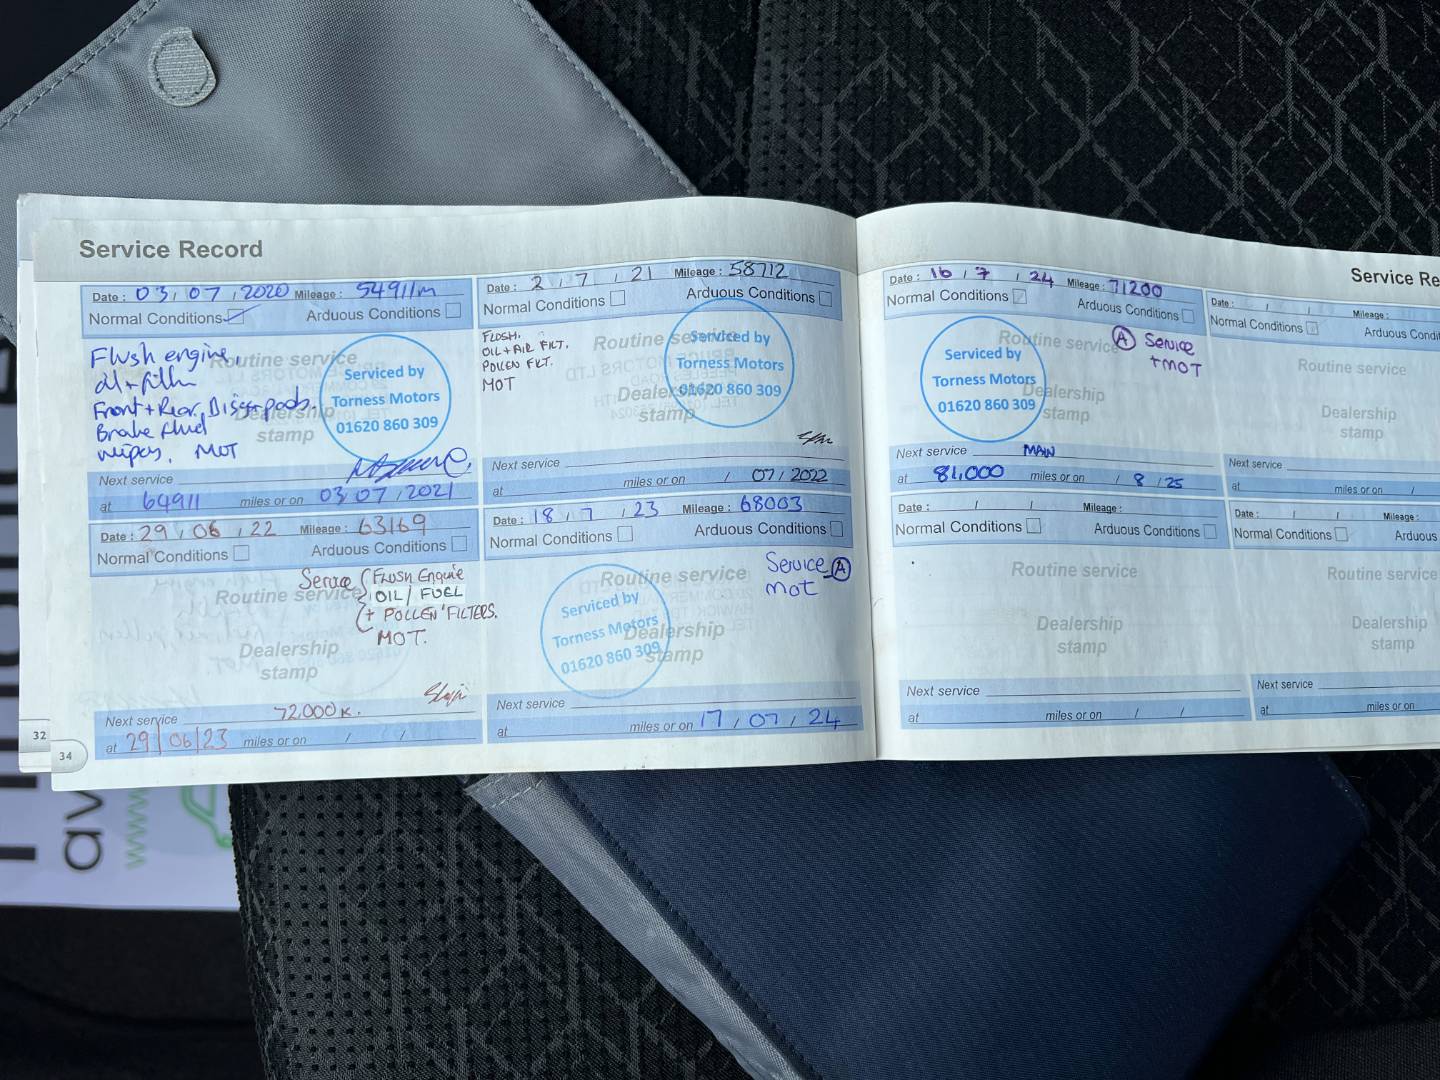 Service Record
Date: 03/07/2020 Mileage: 54911m
Normal Conditions Arduous Conditions
Flush engine,
oil + filter
Front + Rear Discs + pads.
Brake fluid
wipers, MOT
Routine service
Dealership
stamp
Serviced by
Torness Motors
01620 860 309
Next service
at 64911 miles or on 03/07/2021
Date: 2/7/21 Mileage: 58712
Normal Conditions Arduous Conditions
FLUSH.
OIL + AIR FILT.
POLLEN FLT.
MOT
Routine service
Dealership
stamp
Serviced by
Torness Motors
01620 860 309
Next service
at miles or on / 07/2022
Date: 29/06/22 Mileage: 63169
Normal Conditions Arduous Conditions
Service (Flush Engine
OIL/FUEL
+ POLLEN FILTERS.
MOT.
Routine service
Dealership
stamp
Next service 72.000K.
at 29/06/23 miles or on / /
Date: 18/7/23 Mileage: 68003
Normal Conditions Arduous Conditions
Service A
MOT
Routine service
Dealership
stamp
Serviced by
Torness Motors
01620 860 309
Next service
at miles or on 17/07/24
32
34
Service Re
Date: 16/7/24 Mileage: 71200
Normal Conditions Arduous Conditions
A Service
+ MOT
Routine service
Dealership
stamp
Serviced by
Torness Motors
01620 860 309
Next service MAIN
at 81,000 miles or on / 8/25
Date: / / Mileage:
Normal Conditions Arduous Condit
Routine service
Dealership
stamp
Next service
at miles or on /
Date: / / Mileage:
Normal Conditions Arduous Conditions
Routine service
Dealership
stamp
Next service
at miles or on / /
Date: / / Mileage:
Normal Conditions Arduous
Routine service
Dealership
stamp
Next service
at miles or on
av
www